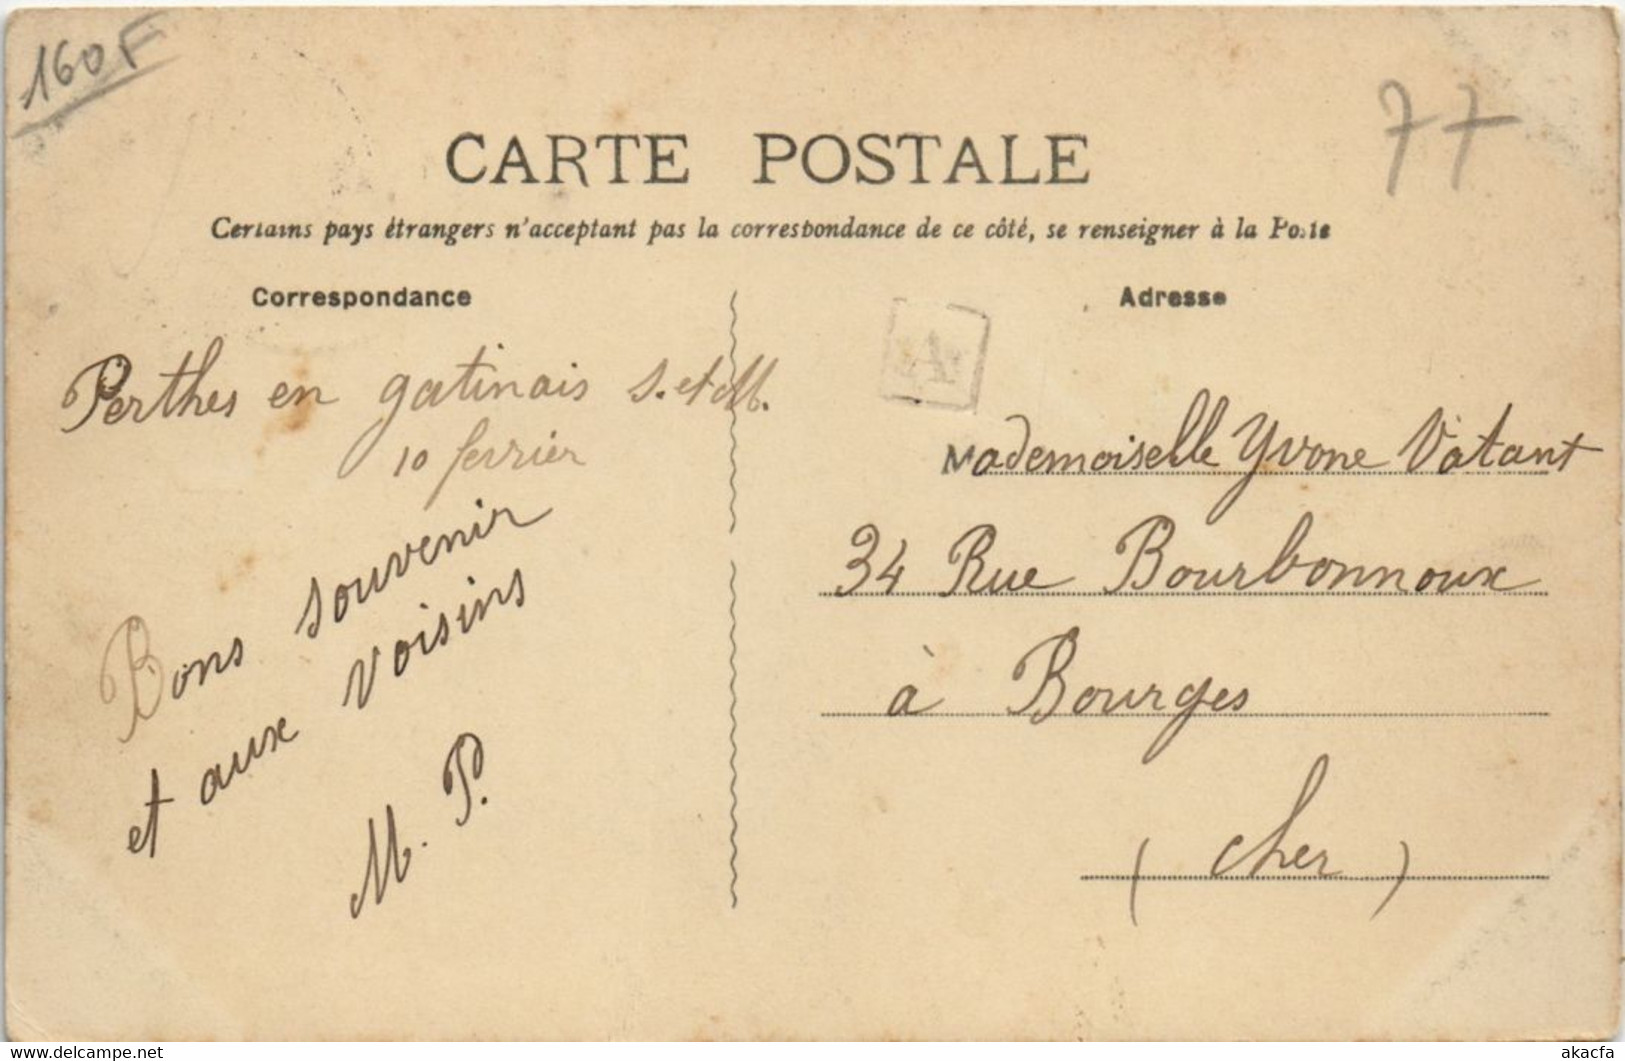 160F
77
CARTE POSTALE
Certains pays étrangers n'acceptant pas la correspondance de ce côté, se renseigner à la Poste
Correspondance
Perthes en gatinais S. et M.
10 fevrier
Bons souvenir
et aux voisins
M. P.
Adresse
Mademoiselle Yvone Vatant
34 Rue Bourbonnoux
à Bourges
(Cher)
delcampe.net
akacfa